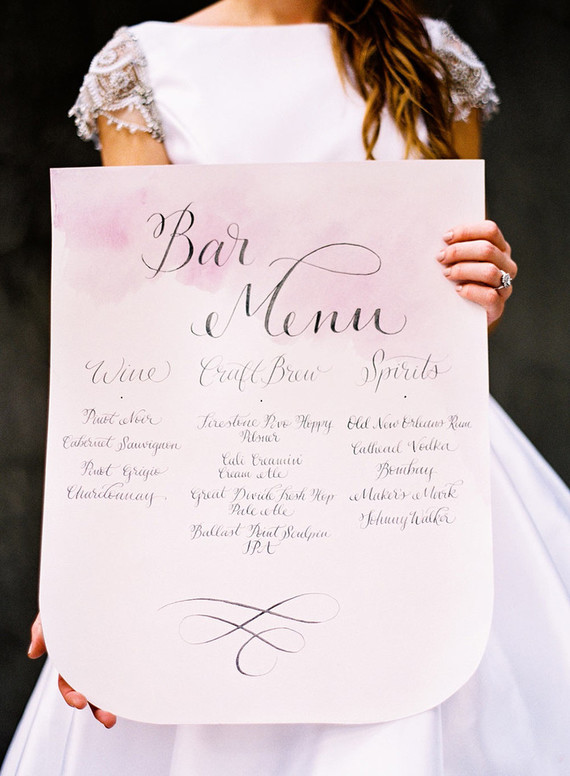 Bar
Menu
Wine
Pinot Noir
Cabernet Sauvignon
Pinot Grigio
Chardonnay
Craft Brew
Firestone Pivo Hoppy
Pilsner
Cali Creamin'
Cream Ale
Great Divide Fresh Hop
Pale Ale
Ballast Point Sculpin
IPA
Spirits
Old New Orleans Rum
Cathead Vodka
Bombay
Maker's Mark
Johnny Walker